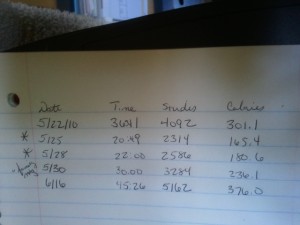 Date Time Strides Calories
5/22/10 36:41 4092 301.1
* 5/25 20.49 2314 165.4
* 5/28 22.00 2586 180.6
5/30 30.00 3284 236.1
6/16 45.26 5162 376.0